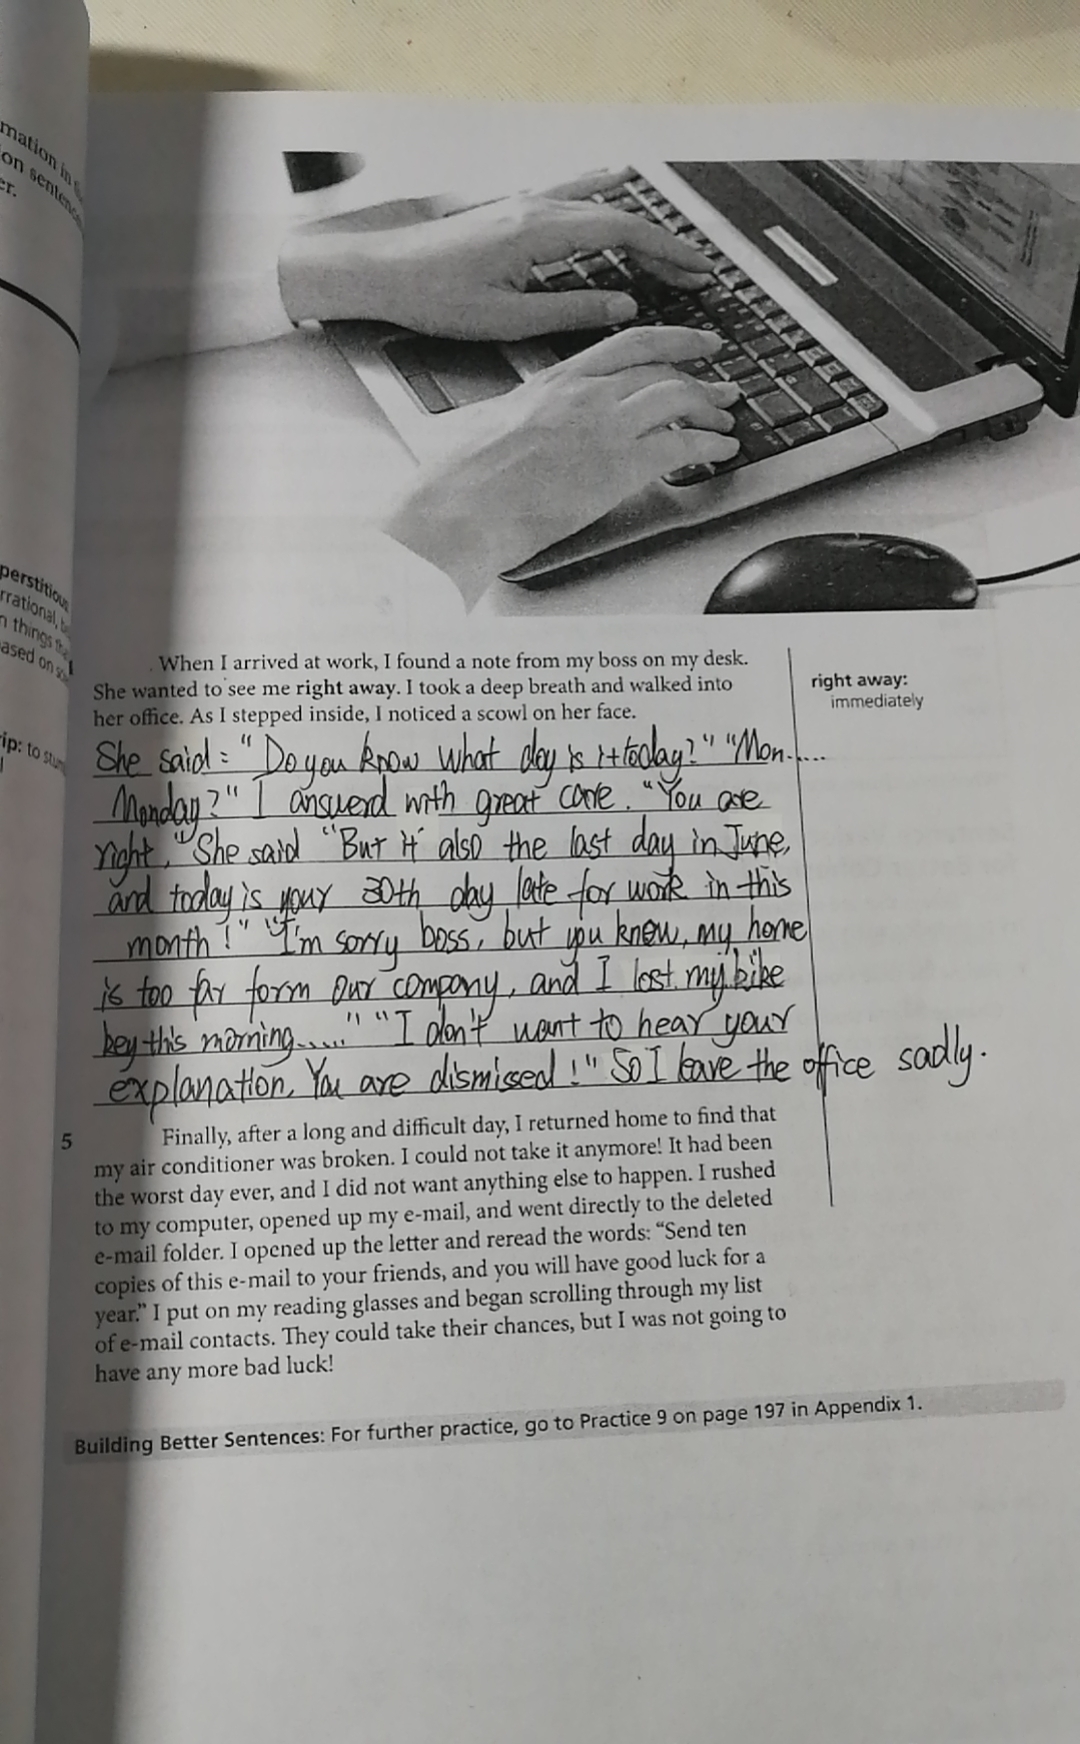 mation in
on sentenc
er.
perstitious
rrational, b
n things tha
ased on so
rip: to stum
When I arrived at work, I found a note from my boss on my desk.
She wanted to see me right away. I took a deep breath and walked into
her office. As I stepped inside, I noticed a scowl on her face.
right away:
immediately
She said: "Do you know what day is it today?" "Mon.....
Monday?" I answerd with great care. "You are
right," She said "But it also the last day in June,
and today is your 30th day late for work in this
month!" "I'm sorry boss, but you know, my home
is too far form our company, and I lost my bike
key this morning....." "I don't want to hear your
explanation, You are dismissed!" So I leave the office sadly.
5
Finally, after a long and difficult day, I returned home to find that
my air conditioner was broken. I could not take it anymore! It had been
the worst day ever, and I did not want anything else to happen. I rushed
to my computer, opened up my e-mail, and went directly to the deleted
e-mail folder. I opened up the letter and reread the words: “Send ten
copies of this e-mail to your friends, and you will have good luck for a
year.” I put on my reading glasses and began scrolling through my list
of e-mail contacts. They could take their chances, but I was not going to
have any more bad luck!
Building Better Sentences: For further practice, go to Practice 9 on page 197 in Appendix 1.